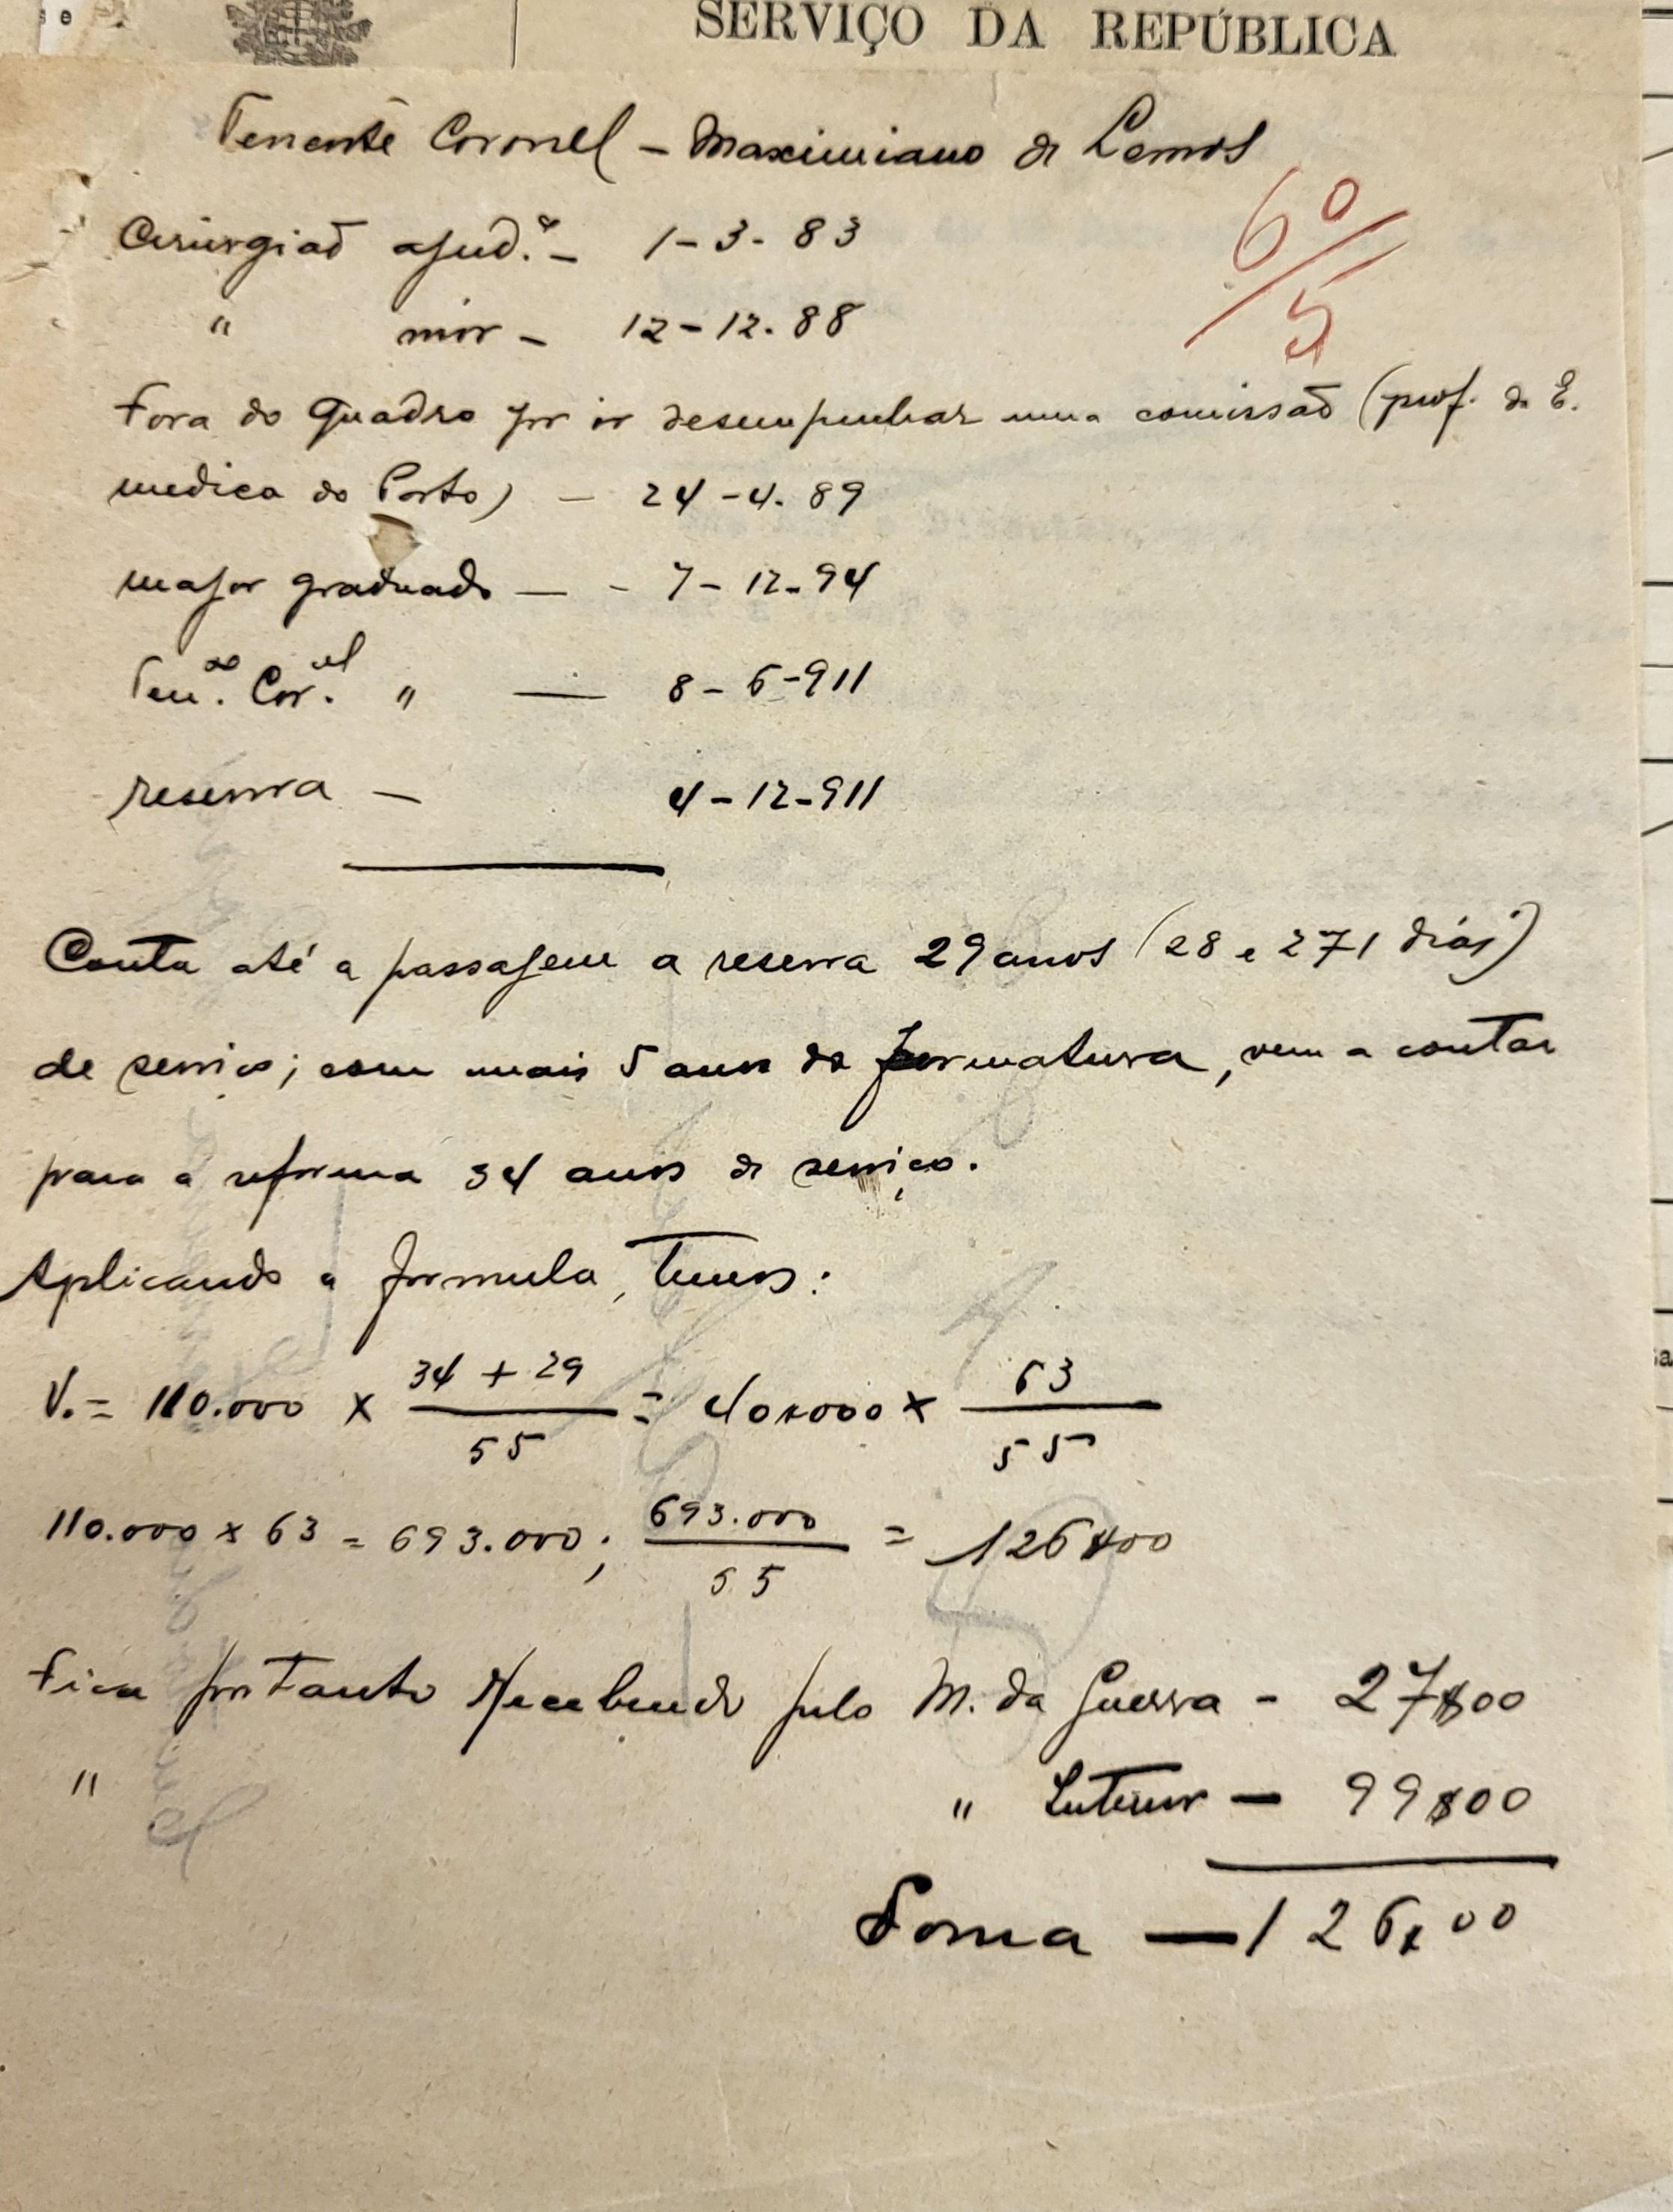 SERVIÇO DA REPÚBLICA
Tenente Coronel - Maximiano de Lemos
6º
5
Cirurgião ajud.e - 1-3-83
" mór - 12-12-88
Fora do quadro por ir desempenhar uma comissão (prof. da E.
medica do Porto) - 24-4-89
major graduado - - 7-12-94
Ten.te Cor.el " - 8-6-911
reserva - 4-12-911
Conta até a passagem a reserva 29 anos (28 e 271 dias)
de serviço; com mais 5 anos da formatura, vem a contar
para a reforma 34 anos de serviço.
Aplicando a formula, temos:
V. = 110.000 × 34 + 29 / 55 = 40$000 × 63 / 55
110.000 × 63 = 693.000; 693.000 / 55 = 126$00
Fica portanto recebendo pelo M. da Guerra - 27$00
" " Interior - 99$00
Soma - 126$00